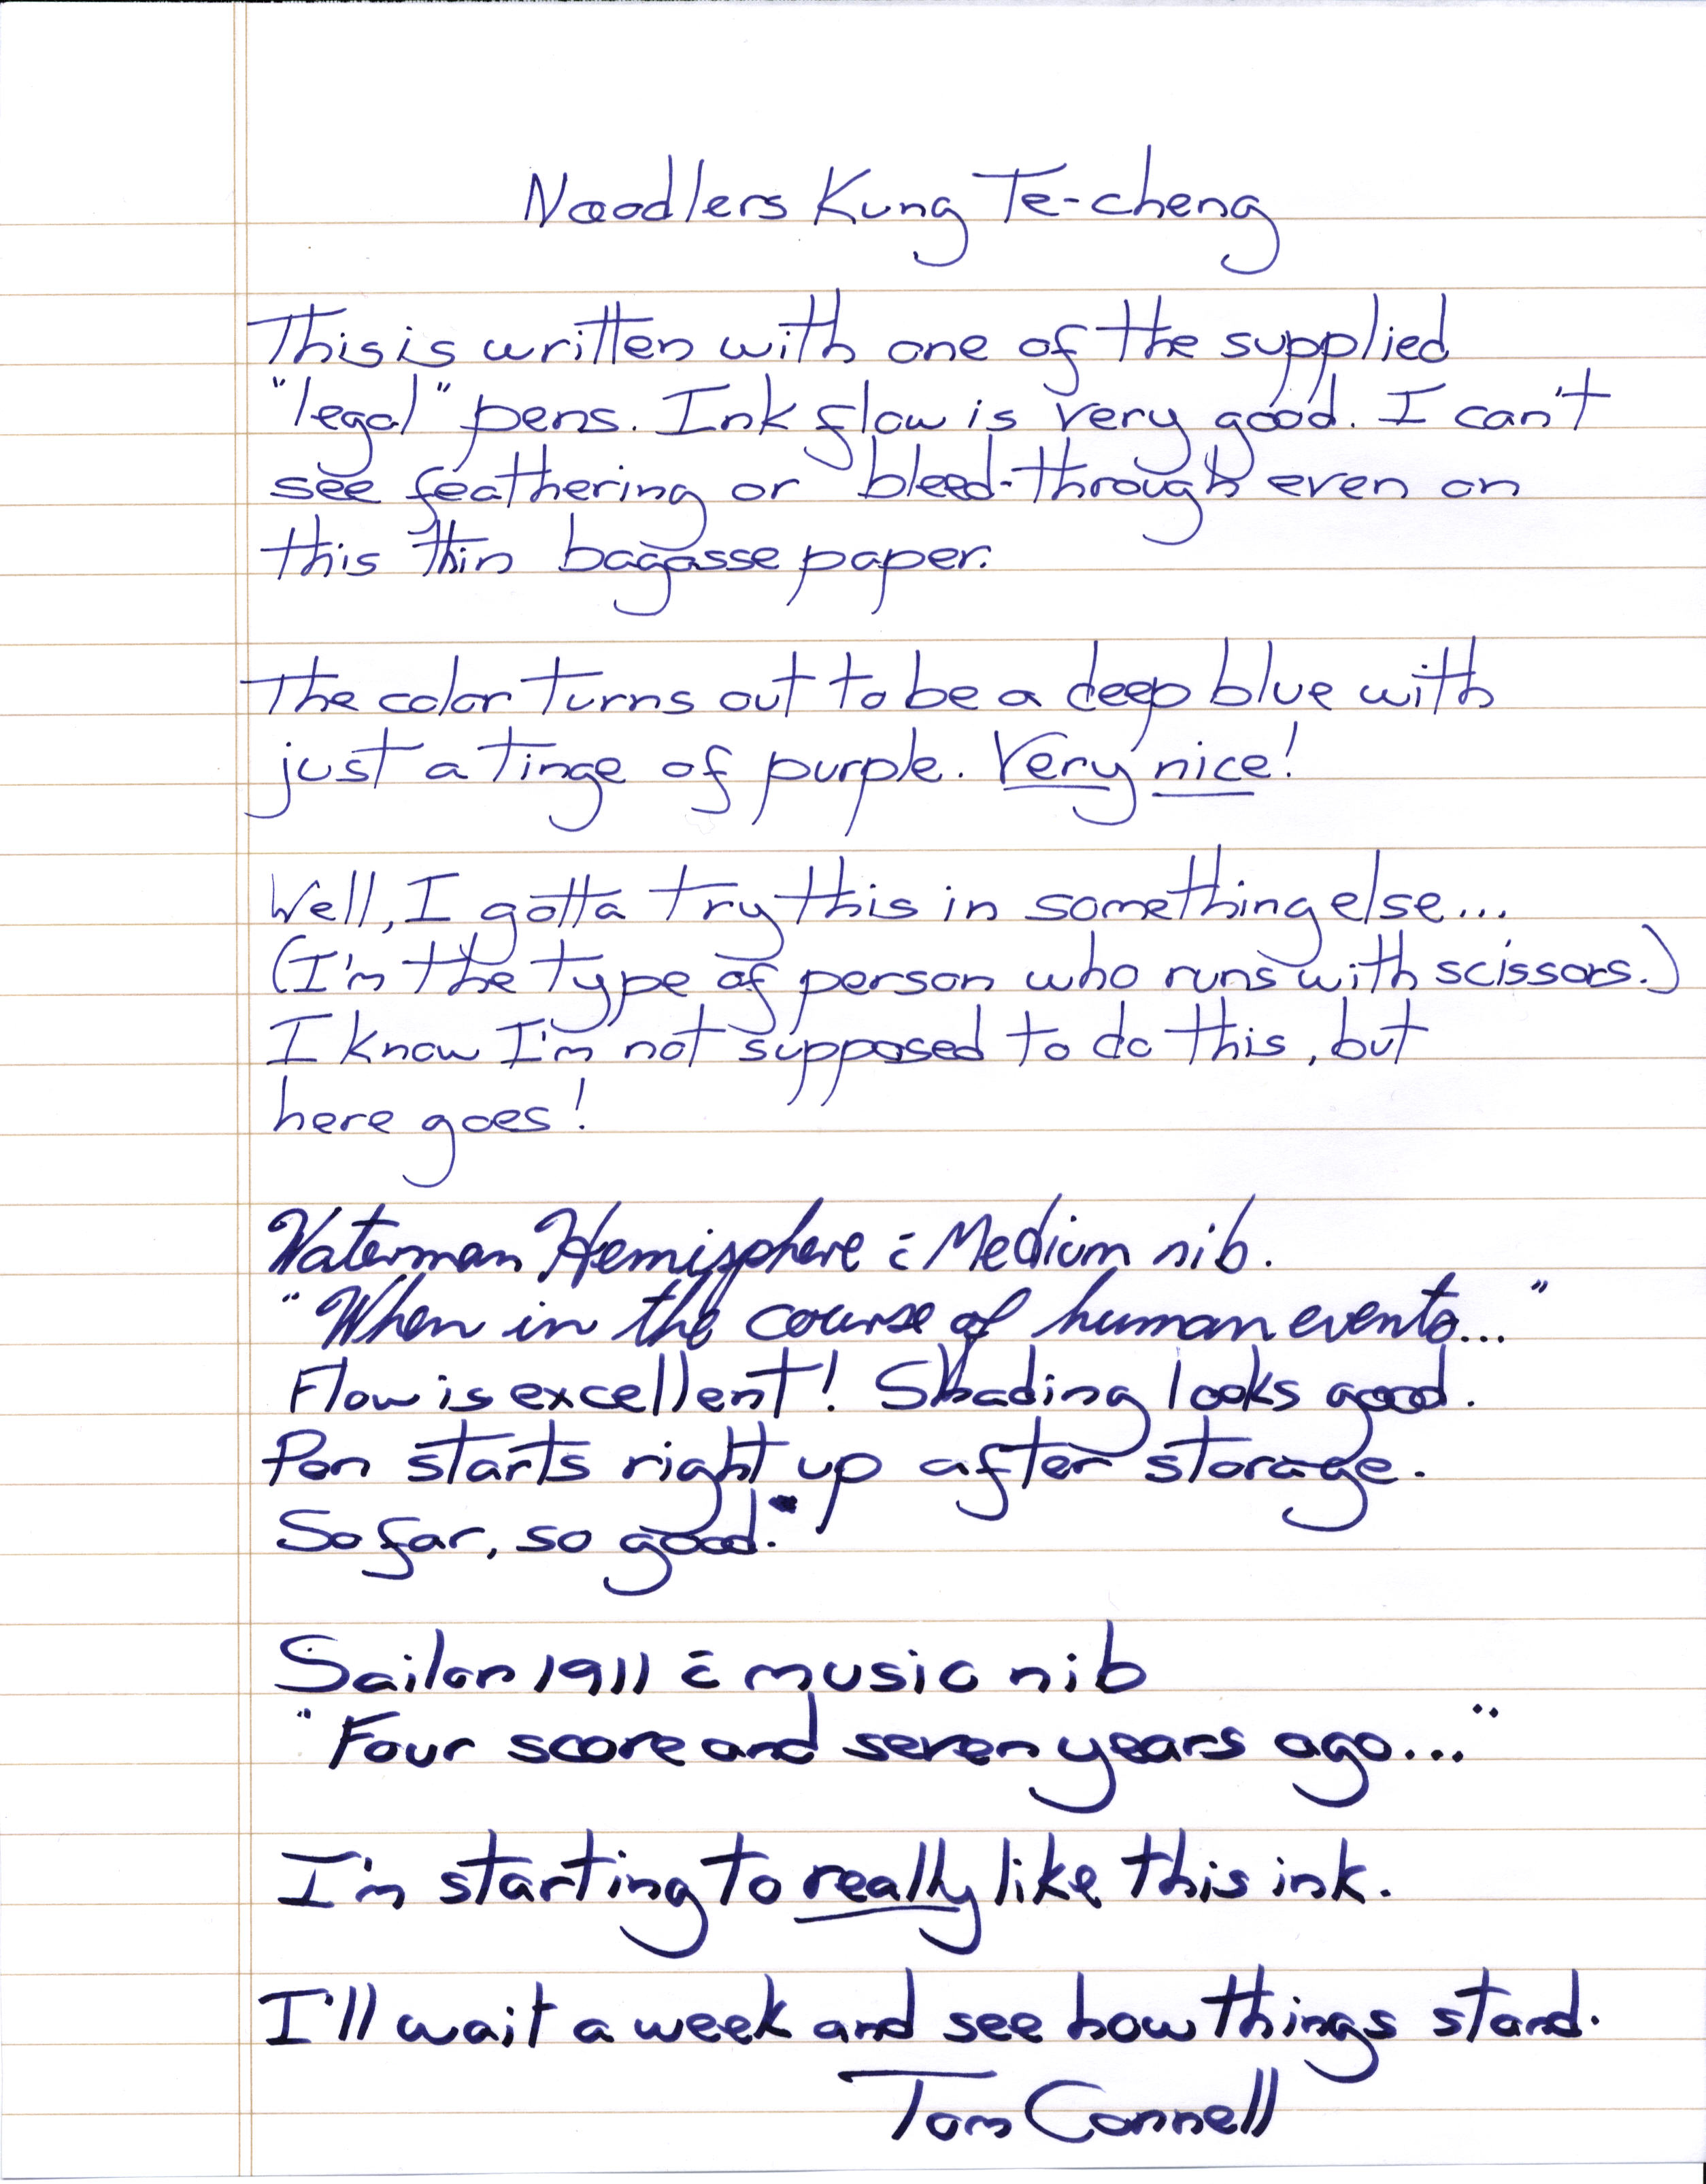 Noodlers Kung Te-cheng
This is written with one of the supplied
"legal" pens. Ink flow is very good. I can't
see feathering or bleed-through even on
this thin bagasse paper.
The color turns out to be a deep blue with
just a tinge of purple. Very nice!
Well, I gotta try this in something else...
(I'm the type of person who runs with scissors.)
I know I'm not supposed to do this, but
here goes!
Waterman Hemisphere c̄ Medium nib.
"When in the course of human events..."
Flow is excellent! Shading looks good.
Pen starts right up after storage.
So far, so good.
Sailor 1911 c̄ music nib
"Four score and seven years ago..."
I'm starting to really like this ink.
I'll wait a week and see how things stand.
Tom Connell